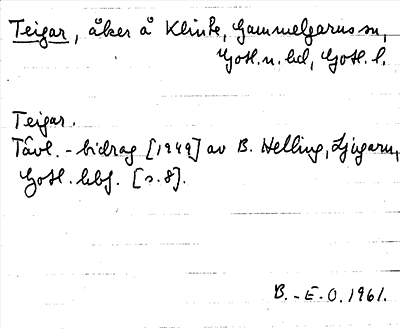 Teigar, åker å Klinte, Gammelgarns sn,
Gotl. n. hd, Gotl. l.
Teigar.
Tävl.-bidrag [1949] av B. Helling, Ljugarn,
Gotl. hbf. [s. 8].
B.-E.O. 1961.